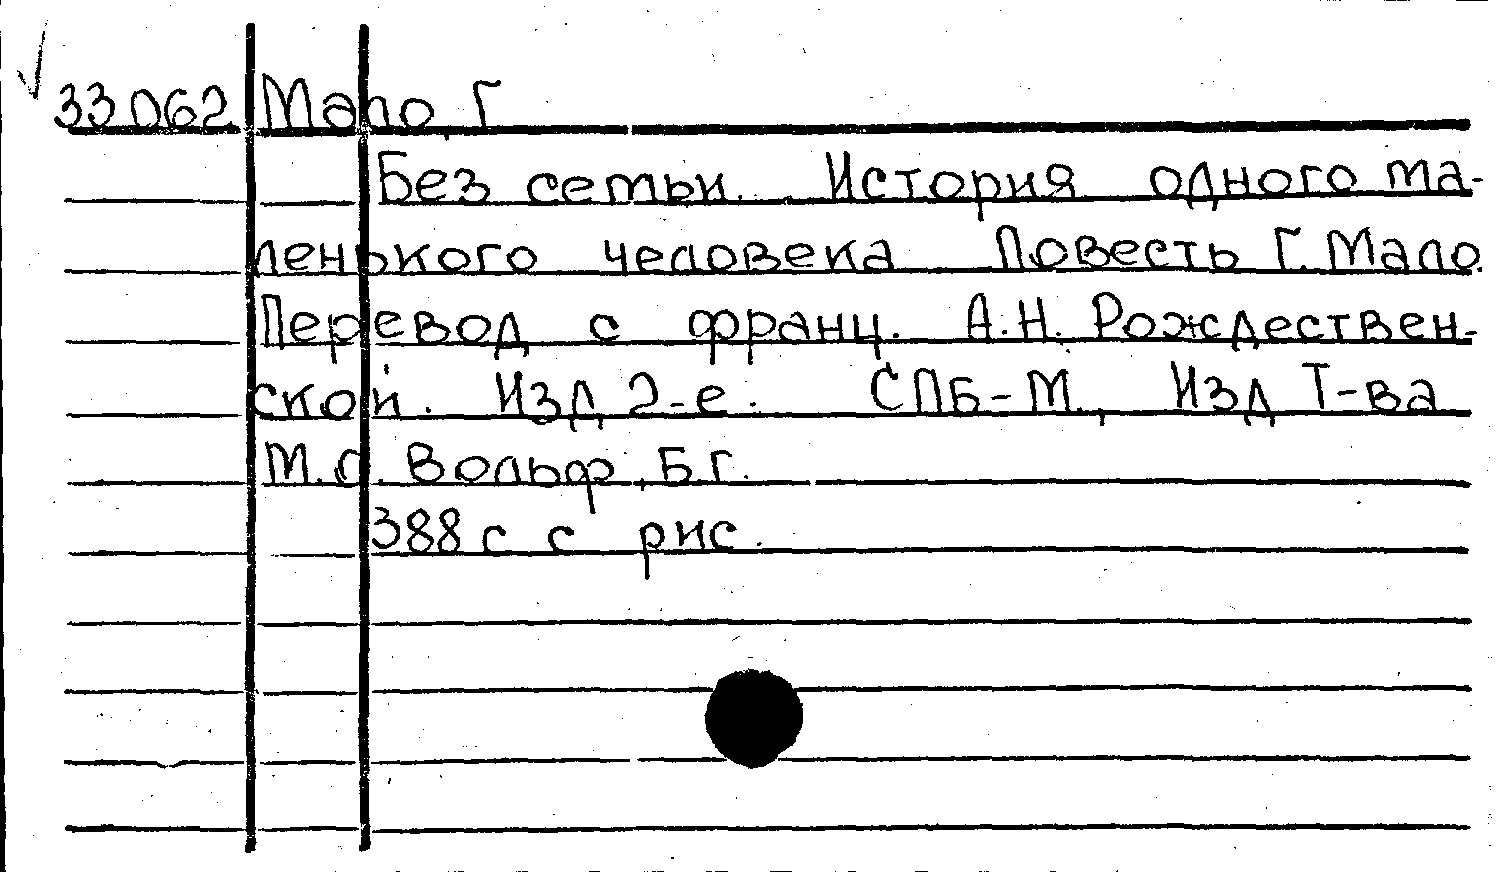 33062 Мало, Г
Без семьи. История одного ма-
ленького человека Повесть Г. Мало.
Перевод с франц. А.Н. Рождествен-
ской. Изд 2-е. СПБ-М., Изд Т-ва
М.О. Вольф, Б.г.
388 с с рис.